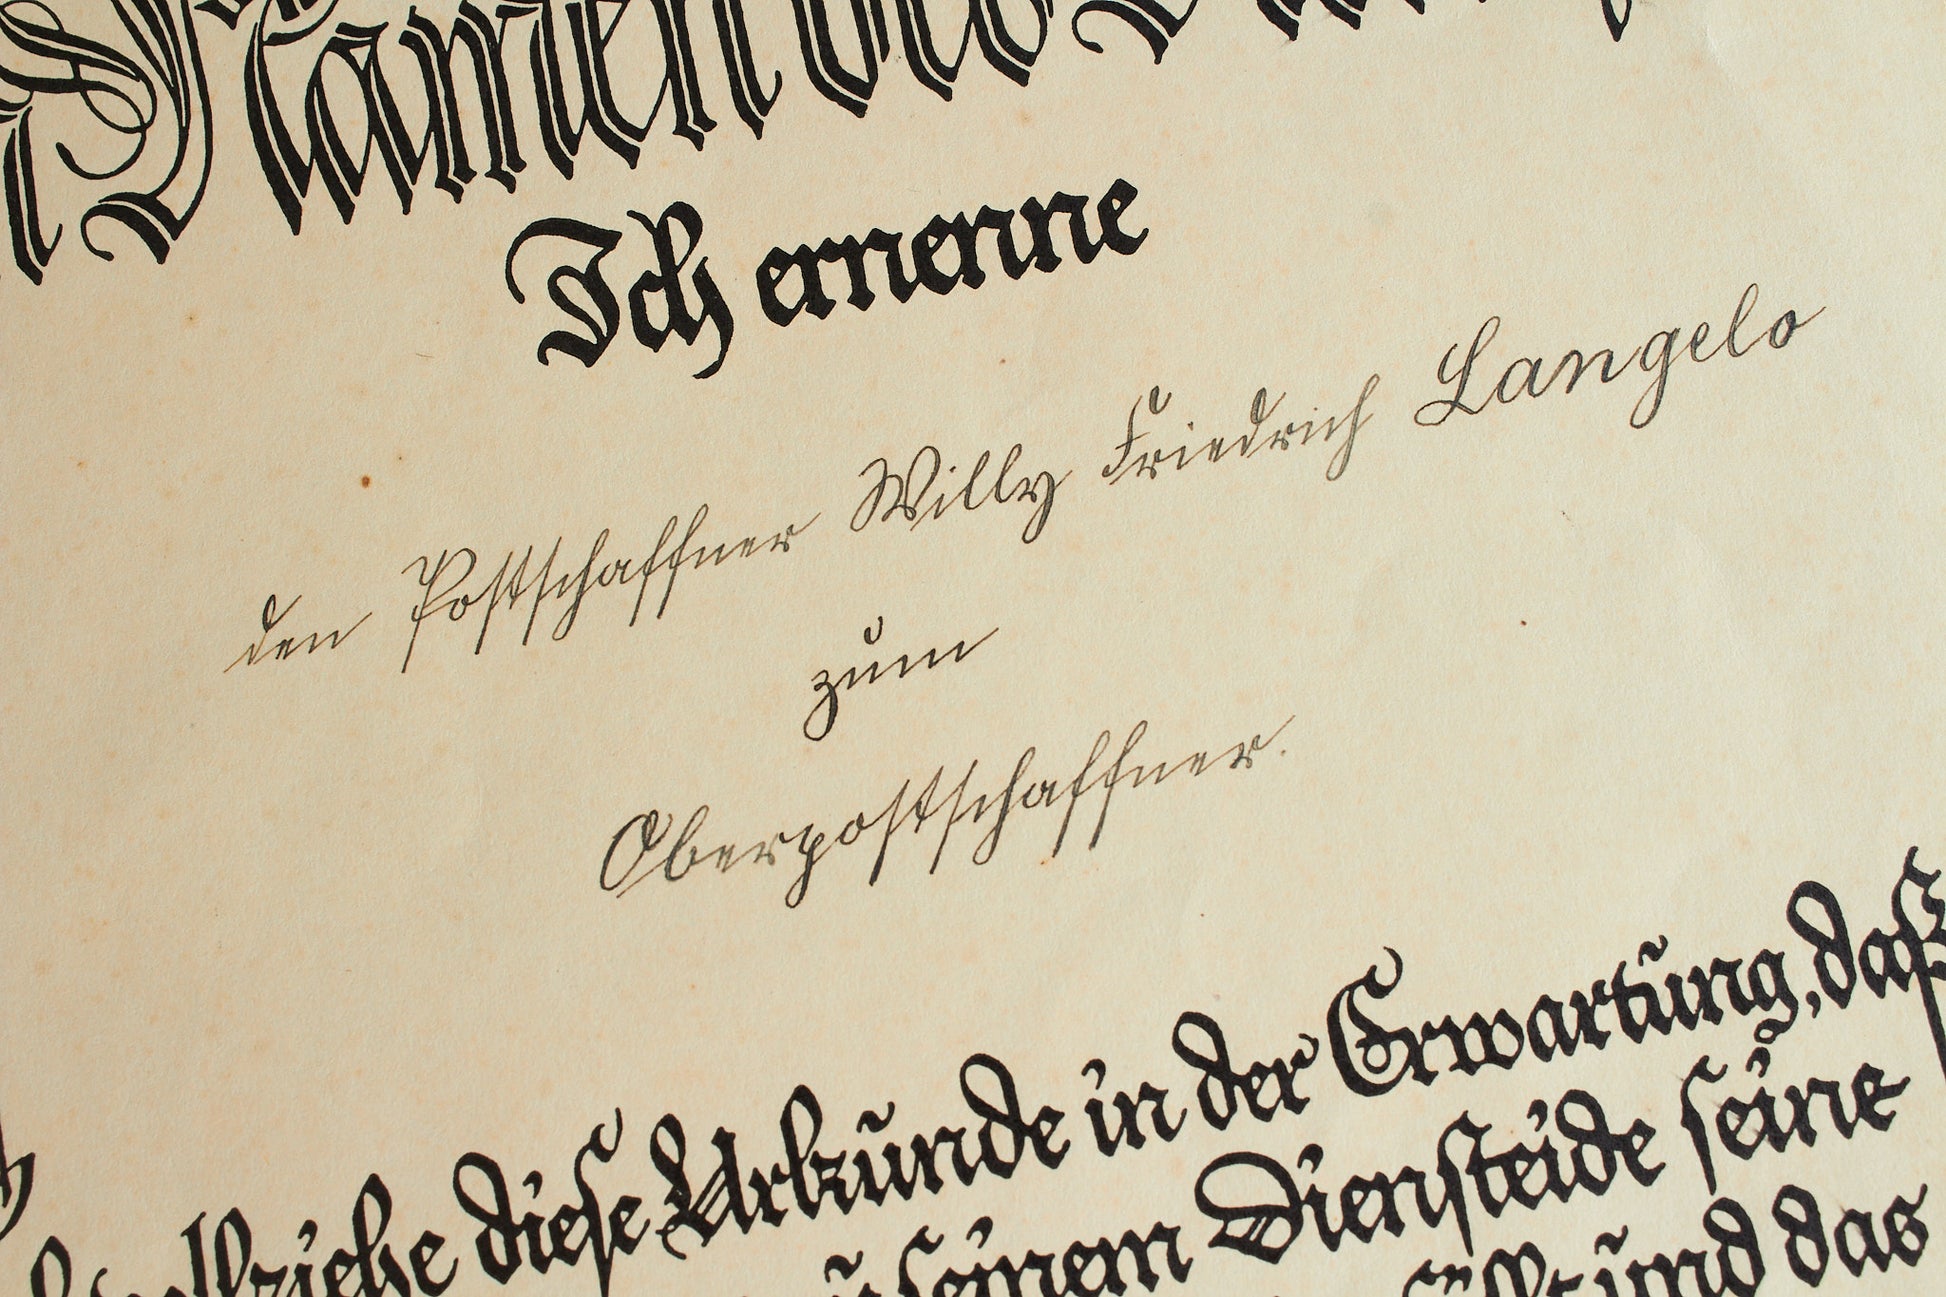 Namen des
Ich ernenne
den Postschaffner Willy Friedrich Langelo
zum
Oberpostschaffner.
vollziehe diese Urkunde in der Erwartung, daß
seinem Diensteide seine
und das